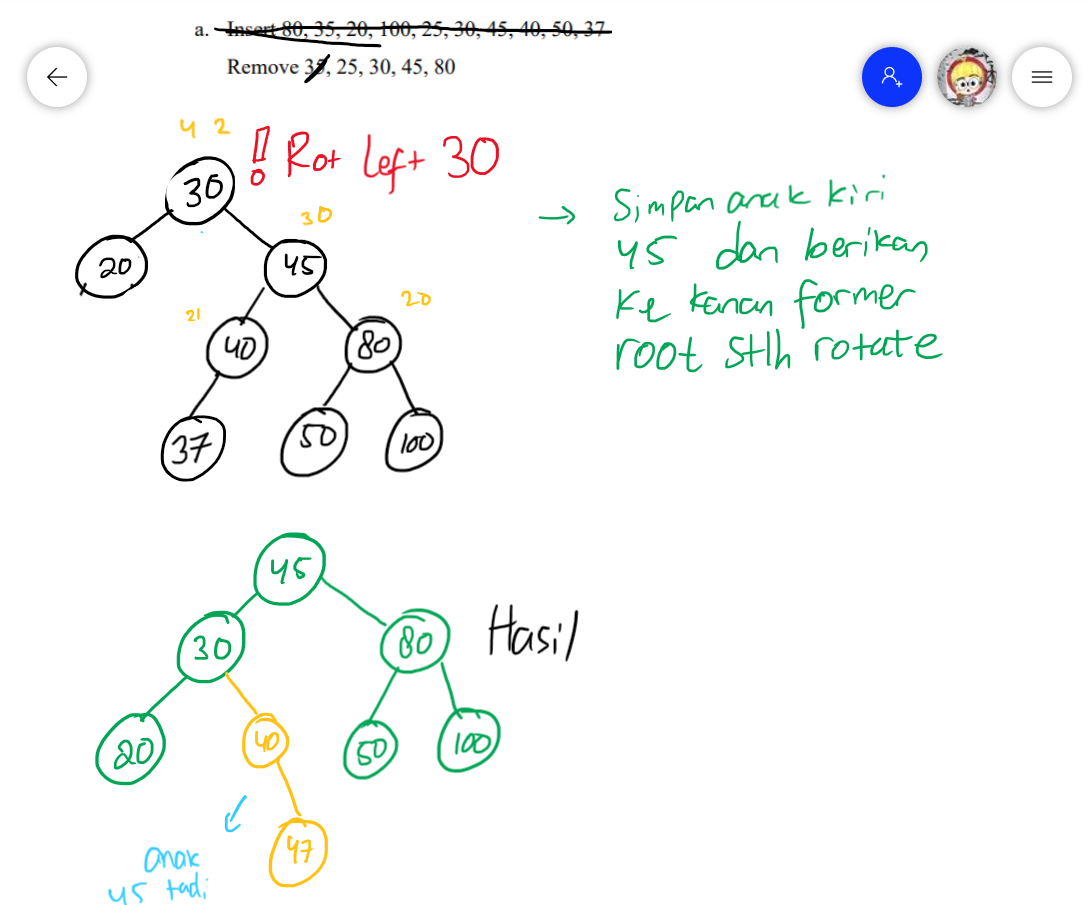 a. Insert 80, 35, 20, 100, 25, 30, 45, 40, 50, 37
Remove 35, 25, 30, 45, 80
4 2
! Rot left 30
30
30
20
45
21
20
40
80
37
50
100
→ Simpan anak kiri
45 dan berikan
ke kanan former
root stlh rotate
45
30
80
Hasil
20
40
50
100
47
anak
45 tadi